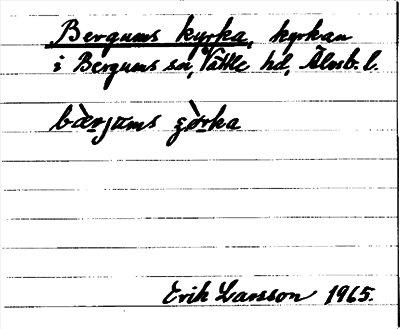 Bergums kyrka, kyrkan
i Bergums sn, Vättle hd, Älvsb. l.
bæ̀rjums çòrka
Erik Larsson 1965.